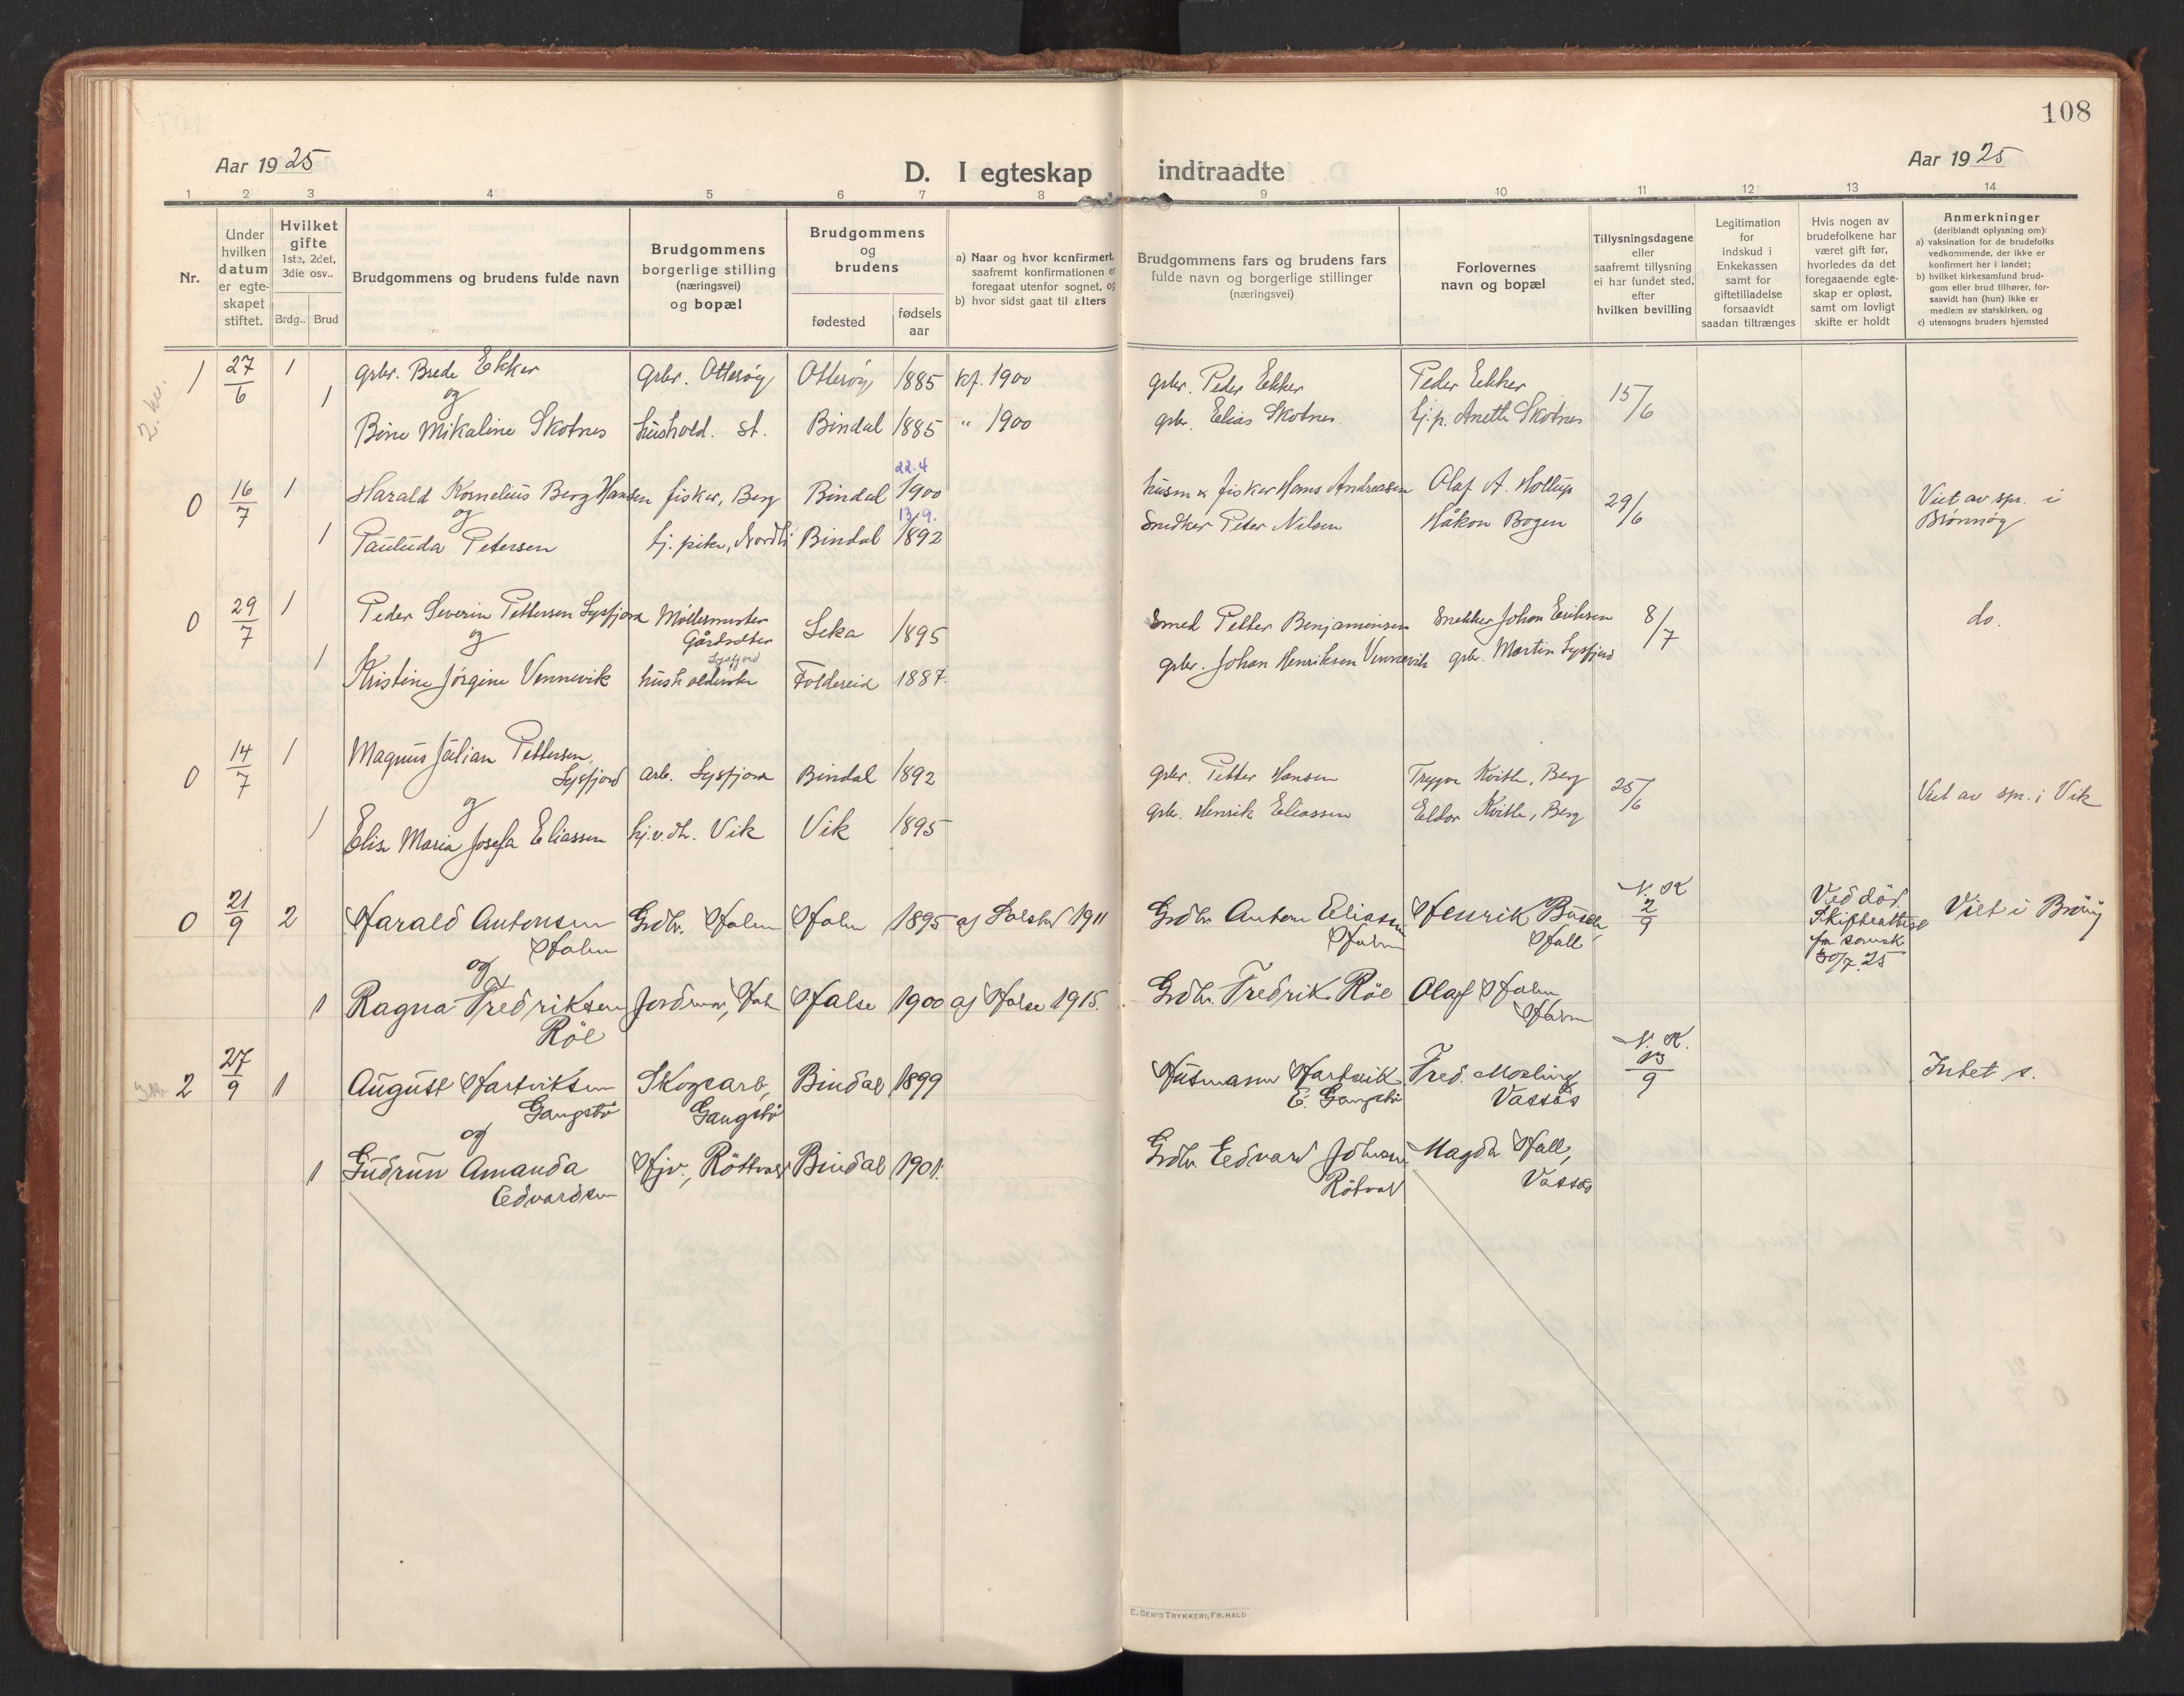 108
Aar 1925
D. I egteskap indtraadte
Aar 1925
1 2 3 4 5 6 7 8 9 10 11 12 13 14
Nr.
Under
hvilken
datum
er egte-
skapet
stiftet.
Hvilket
gifte
1ste, 2det,
3die osv..
Brdg.. Brud
Brudgommens og brudens fulde navn
Brudgommens
borgerlige stilling
(næringsvei)
og bopæl
Brudgommens
og
brudens
fødested
fødsels
aar
a) Naar og hvor konfirmert,
saafremt konfirmationen er
foregaat utenfor sognet, og
b) hvor sidst gaat til alters
Brudgommens fars og brudens fars
fulde navn og borgerlige stillinger
(næringsvei)
Forlovernes
navn og bopæl
Tillysningsdagene
eller
saafremt tillysning
ei har fundet sted,
efter
hvilken bevilling
Legitimation
for
indskud i
Enkekassen
samt for
giftetilladelse
forsaavidt
saadan tiltrænges
Hvis nogen av
brudefolkene har
været gift før,
hvorledes da det
foregaaende egte-
skap er opløst,
samt om lovligt
skifte er holdt
Anmerkninger
(deriblandt oplysning om):
a) vaksination for de brudefolks
vedkommende, der ikke er
konfirmert her i landet;
b) hvilket kirkesamfund brud-
gom eller brud tilhører, for-
saavidt han (hun) ikke er
medlem av statskirken, og
c) utensogns bruders hjemsted
1 27/6 1 gbr. Brede Ekker gbr. Otterøy Otterøy 1885 kf. 1900 gbr. Peder Ekker Peder Ekker 15/6
og
1 Bine Mikaline Skotnes hushold. st. Bindal 1885 " 1900 gbr. Elias Skotnes tj.p. Anette Skotnes
22.4
0 16/7 1 Harald Kornelius Berg Hansen fisker, Berg Bindal 1900 husm & fisker Hans Andreasen Olaf A. Hollup 29/6 Viet av spr. i
Brønnøy
og
13.9.
1 Pauluda Petersen tj. pike, Nordli Bindal 1892 Snedker Peter Nilsen Håkon Bogen
0 29/7 1 Peder Severin Pettersen Sysfjord Møllermester
Gårdsdtr Leka 1895 Smed Petter Benjaminsen Snekker Johan Eriksen 8/7 do.
og
Sysfjord
1 Kristine Jørgine Vennevik husholderske Foldereid 1887. gbr. Johan Henriksen Vennevik gbr. Martin Sysfjord
0 14/7 1 Magnus Julian Pettersen,
Sysfjord arb. Sysfjord Bindal 1892 gbr. Petter Hansen Trygve Kvitle, Berg 25/6 Viet av spr. i Vik
og
1 Elise Maria Josefa Eliassen hj.v. dt. Vik Vik 1895 gbr. Henrik Eliassen Eldor Kvitle, Berg
0 21/9 2 Harald Antonsen
Holm Grdbr. Holm Holm 1895 af Solstad 1911 Grdbr. Anton Eliasen
Holm Henrik Busch,
Hall N. K
2/9 Ved død.
Skifteattest
fra
30/7.25 Viet i Brøny
og
1 Ragna Fredriksen
Röe Jordmor, Hol Halse 1900 af Halse 1915. Grdbr. Fredrik Röe Olaf Holm
Holm
2 27/9 1 August Hartviksen
Gangstø Skogsarb,
Gangstø Bindal 1899 Husmann Hartvik
E. Gangstø Fred. Morling
Vassås N. K.
13/9 Intet s.
og
1 Gudrun Amanda
Edvardsen Hjv., Röttvas Bindal 1901. Grdbr. Edvard Johnsen
Rötvas Magda Hall,
Vassås
E. SEM'S TRYKKERI, FR.HALD